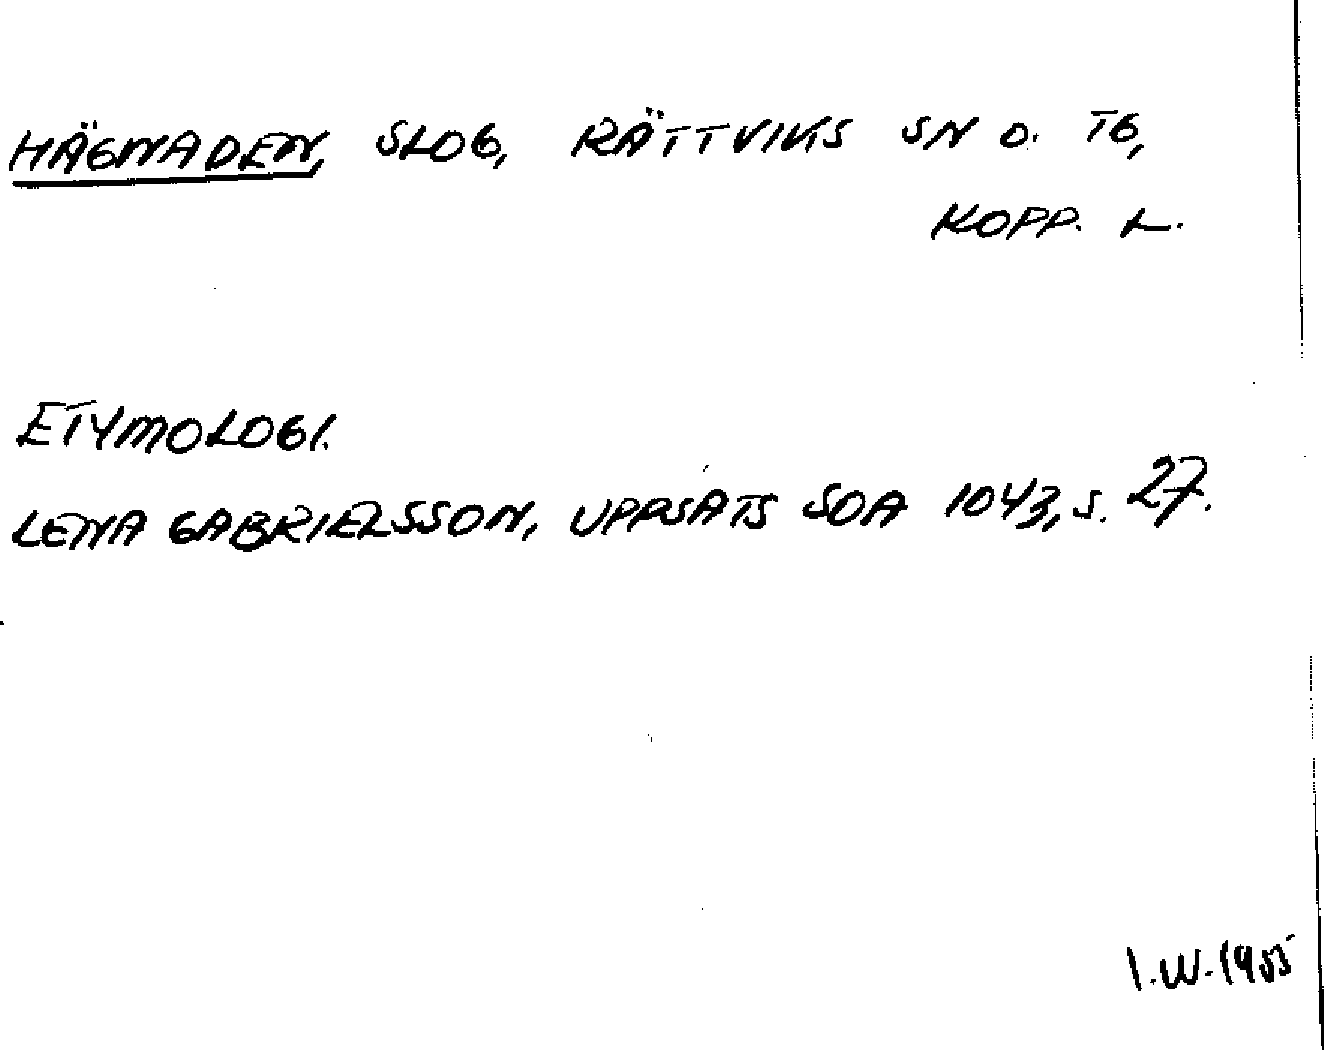 HÄGNADEN, SLOG, RÄTTVIKS SN O. TG,
KOPP. L.
ETYMOLOGI.
LENA GABRIELSSON, UPPSATS SOA 1043, S. 27.
I.W. 1955